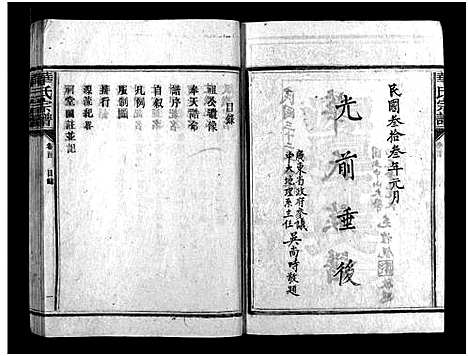 民國叁拾叁年元月
光前垂後
廣東省政府參議
中大地理系主任
吳尚時敬題
華氏宗譜
卷首 目錄
目錄
祖公遺像
奉天誥命
譜序
自叙
凡例
服制圖
班行
源流紀畧
祠堂圖註並記